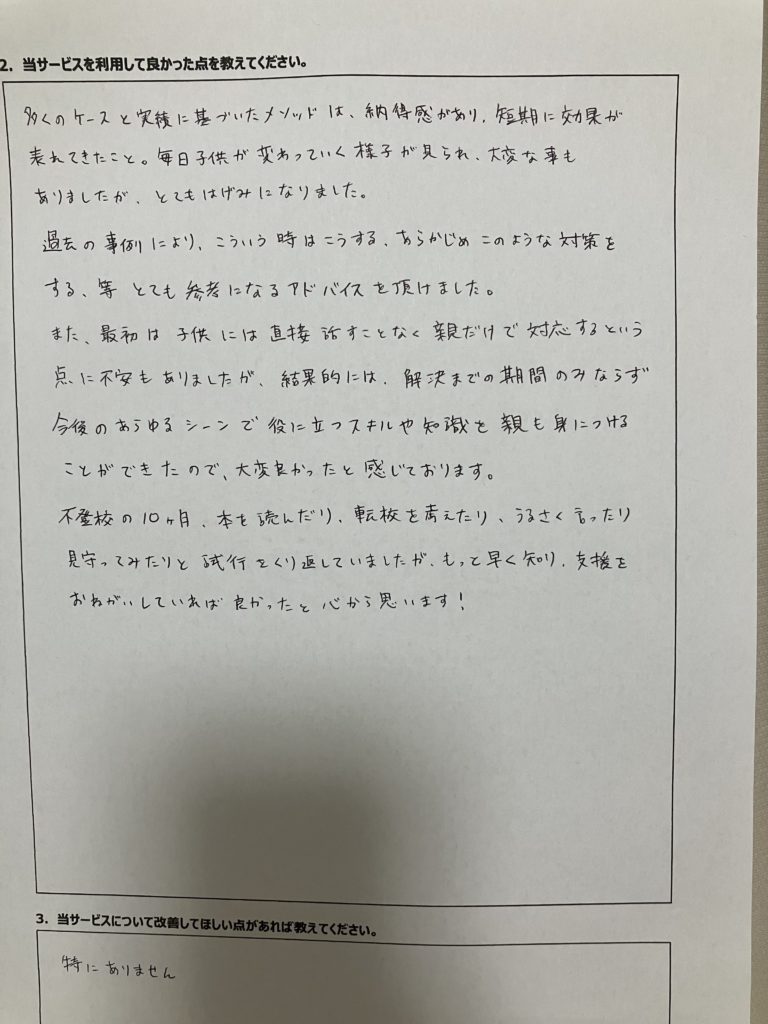 2. 当サービスを利用して良かった点を教えてください。
多くのケースと実績に基づいたメソッドは、納得感があり、短期に効果が
表れてきたこと。毎日子供が変わっていく様子が見られ、大変な事も
ありましたが、とてもはげみになりました。
過去の事例により、こういう時はこうする、あらかじめこのような対策を
する、等とても参考になるアドバイスを頂けました。
また、最初は子供には直接話すことなく親だけで対応するという
点に不安もありましたが、結果的には、解決までの期間のみならず
今後のあらゆるシーンで役に立つスキルや知識を親も身につける
ことができたので、大変良かったと感じております。
不登校の10ヶ月、本を読んだり、転校を考えたり、うるさく言ったり
見守ってみたりと試行をくり返していましたが、もっと早く知り、支援を
おねがいしていれば良かったと心から思います!
3. 当サービスについて改善してほしい点があれば教えてください。
特にありません